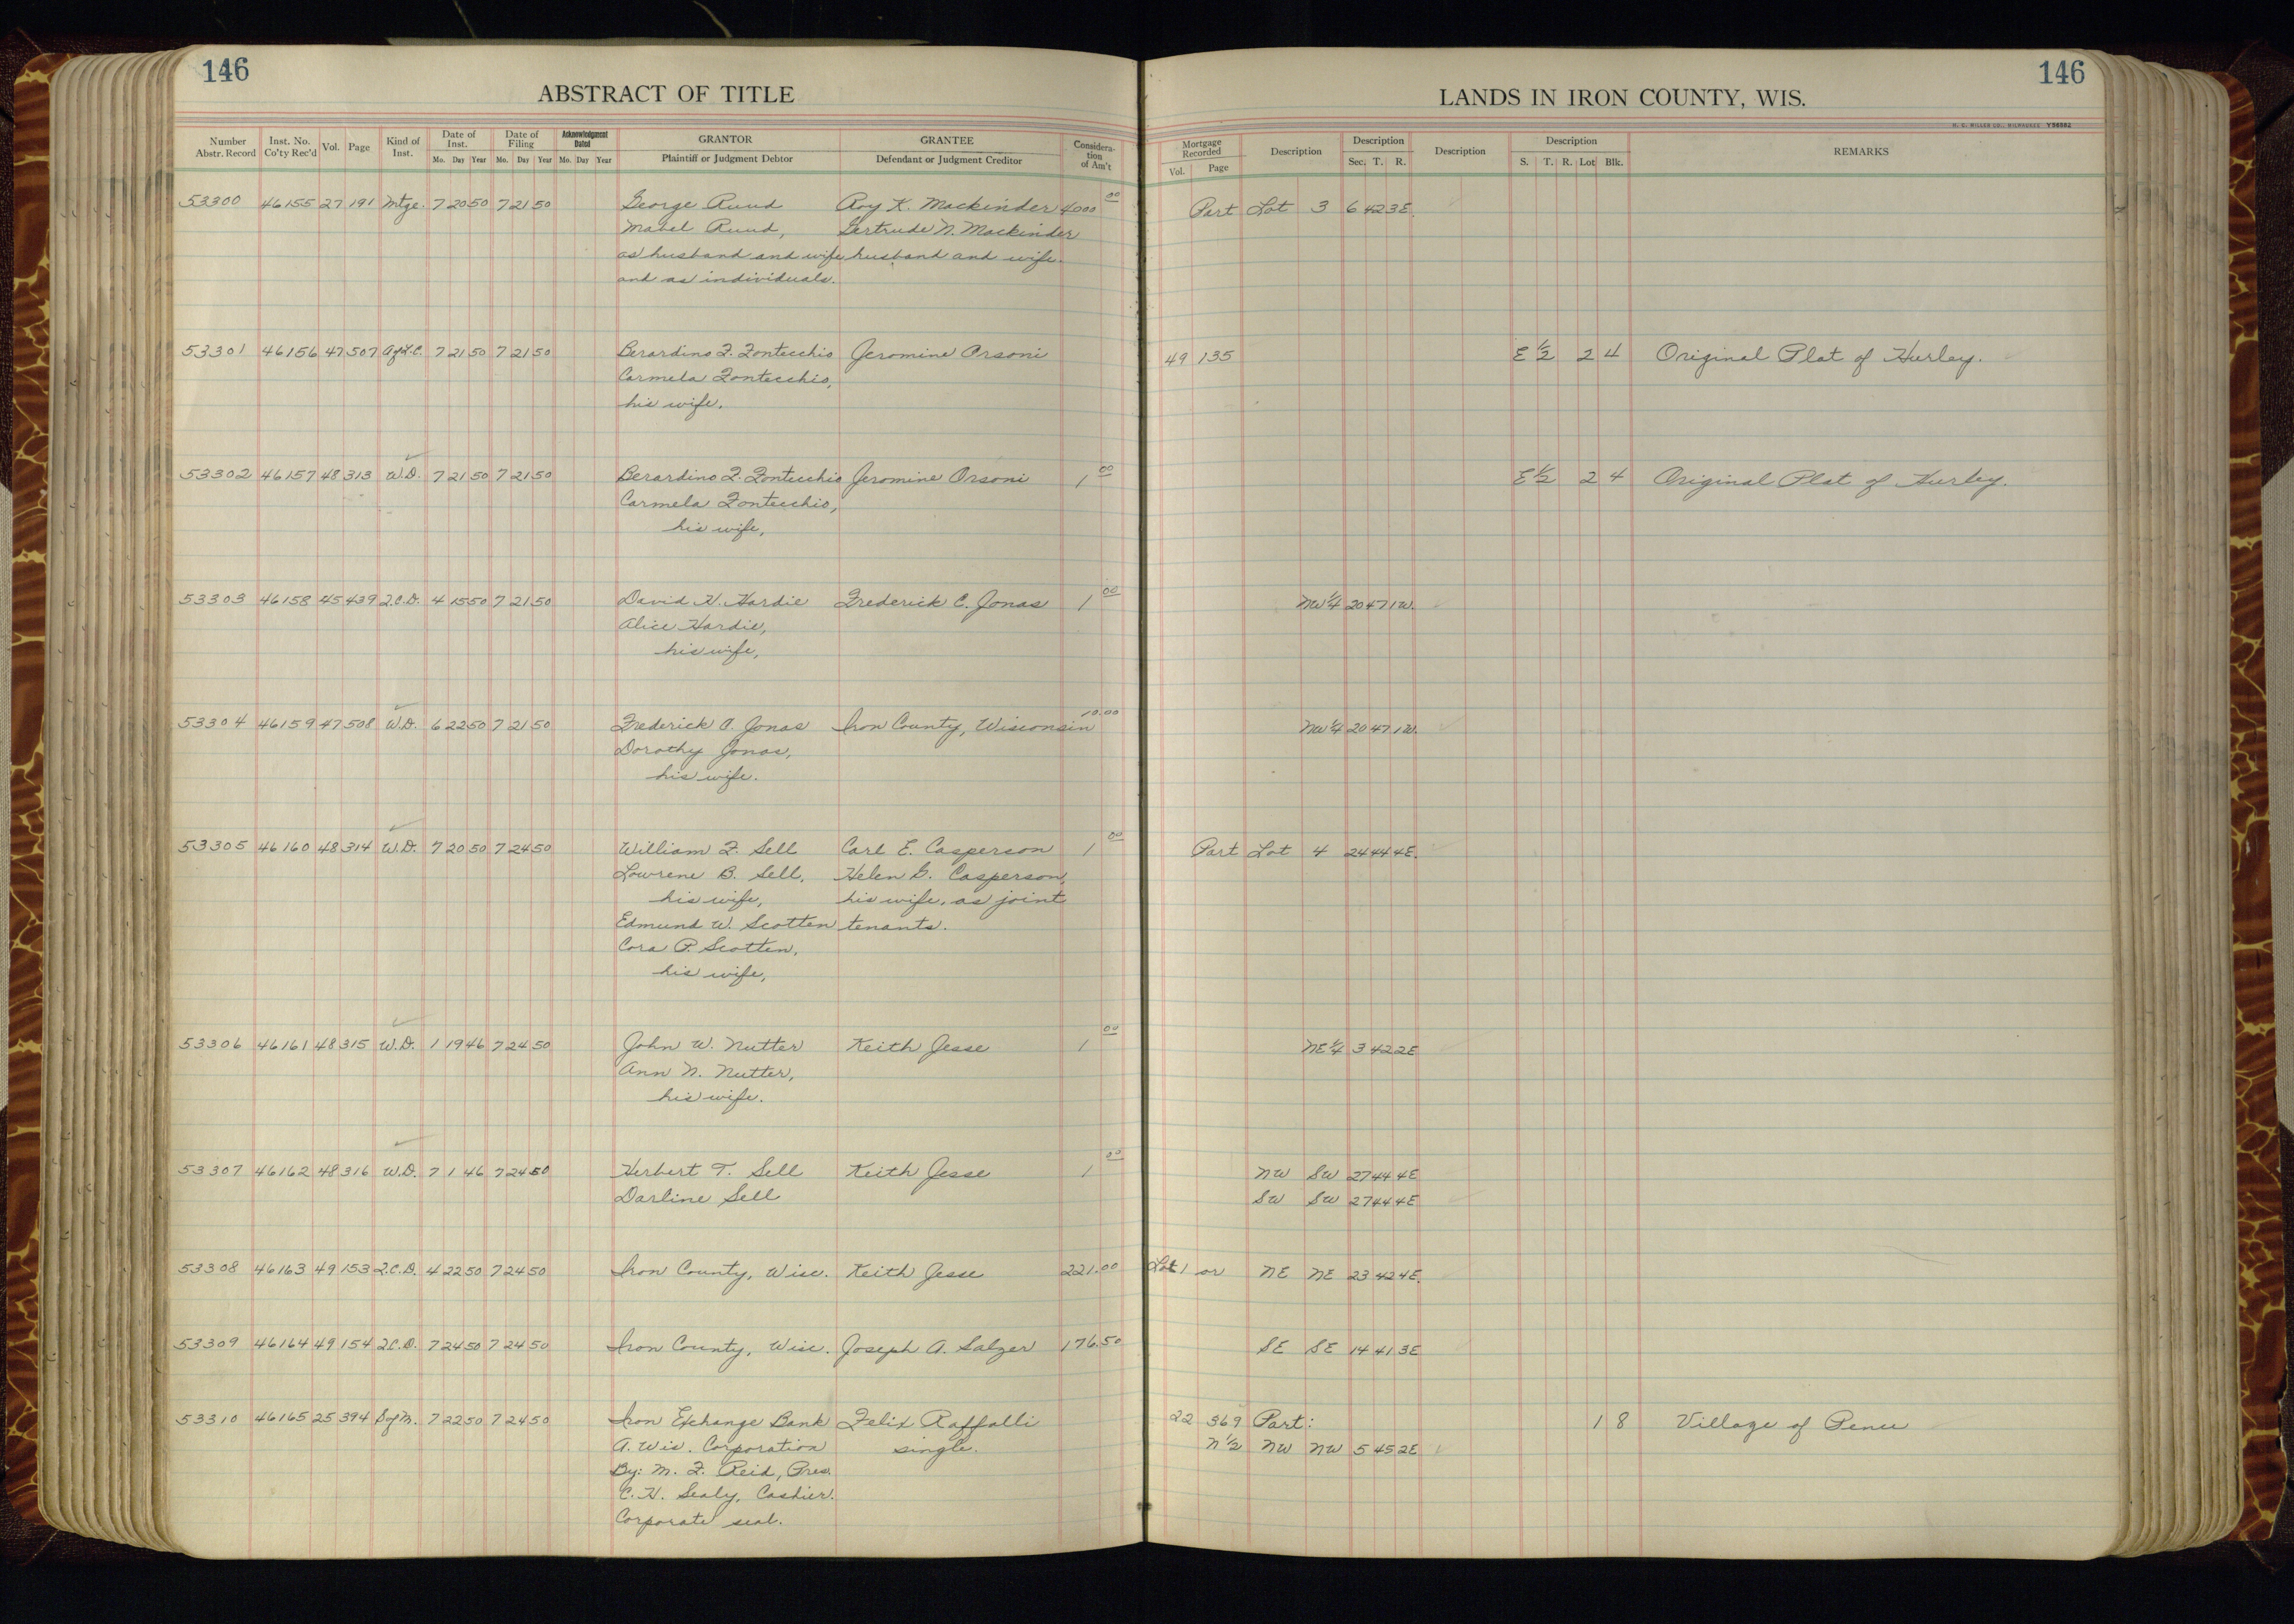 146
ABSTRACT OF TITLE
Number Abstr. Record Inst. No. Co'ty Rec'd Vol. Page Kind of Inst. Date of Inst. Mo. Day Year Date of Filing Mo. Day Year Acknowledgment Dated Mo. Day Year GRANTOR Plaintiff or Judgment Debtor GRANTEE Defendant or Judgment Creditor Considera-tion of Am't
53300 46155 27 191 Mtge. 7 20 50 7 21 50 George Ruud Roy K. Mackinder 4000 00
Mabel Ruud, Gertrude N. Mackinder
as husband and wife husband and wife.
and as individuals.
53301 46156 47 507 Af.L.C. 7 21 50 7 21 50 Berardino F. Fontecchio Jeromine Orsoni
Carmela Fontecchio,
his wife.
53302 46157 48 313 W.D. 7 21 50 7 21 50 Berardino F. Fontecchio Jeromine Orsoni 1 00
Carmela Fontecchio,
his wife,
53303 46158 45 439 Q.C.D. 4 15 50 7 21 50 David H. Hardie Frederick C. Jonas 1 00
Alice Hardie,
his wife,
53304 46159 47 508 W.D. 6 22 50 7 21 50 Frederick C. Jonas Iron County, Wisconsin 10.00
Dorothy Jonas,
his wife.
53305 46160 48 314 W.D. 7 20 50 7 24 50 William F. Sell Carl E. Casperson 1 00
Lowrene B. Sell, Helen G. Casperson,
his wife, his wife, as joint
Edmund W. Scotten tenants.
Cora P. Scotten,
his wife,
53306 46161 48 315 W.D. 1 19 46 7 24 50 John W. Nutter Keith Jesse 1 00
Ann N. Nutter,
his wife.
53307 46162 48 316 W.D. 7 1 46 7 24 50 Herbert T. Sell Keith Jesse 1 00
Darline Sell
53308 46163 49 153 Q.C.D. 4 22 50 7 24 50 Iron County, Wisc. Keith Jesse 221.00
53309 46164 49 154 Q.C.D. 7 24 50 7 24 50 Iron County, Wisc. Joseph A. Salzer 176.50
53310 46165 25 394 S of M. 7 22 50 7 24 50 Iron Exchange Bank Felix Raffalli
A. Wis. Corporation single.
By: M. F. Reid, Pres.
C. H. Sealy, Cashier.
Corporate seal.
146
LANDS IN IRON COUNTY, WIS.
H. C. MILLER CO., MILWAUKEE
Mortgage Recorded Vol. Page Description Description Sec. T. R. Description Description S. T. R. Lot Blk. REMARKS
Part Lot 3 6 42 3E.
49 135 E 1/2 2 4 Original Plat of Hurley.
E 1/2 2 4 Original Plat of Hurley.
NW 1/4 20 47 1W.
NW 1/4 20 47 1W.
Part Lot 4 24 44 4E.
NE 1/4 3 42 2E
NW SW 27 44 4E
SW SW 27 44 4E
Lot 1 or NE NE 23 42 4E.
SE SE 14 41 3E
22 369 Part: 1 8 Village of Pence
N 1/2 NW NW 5 45 2E